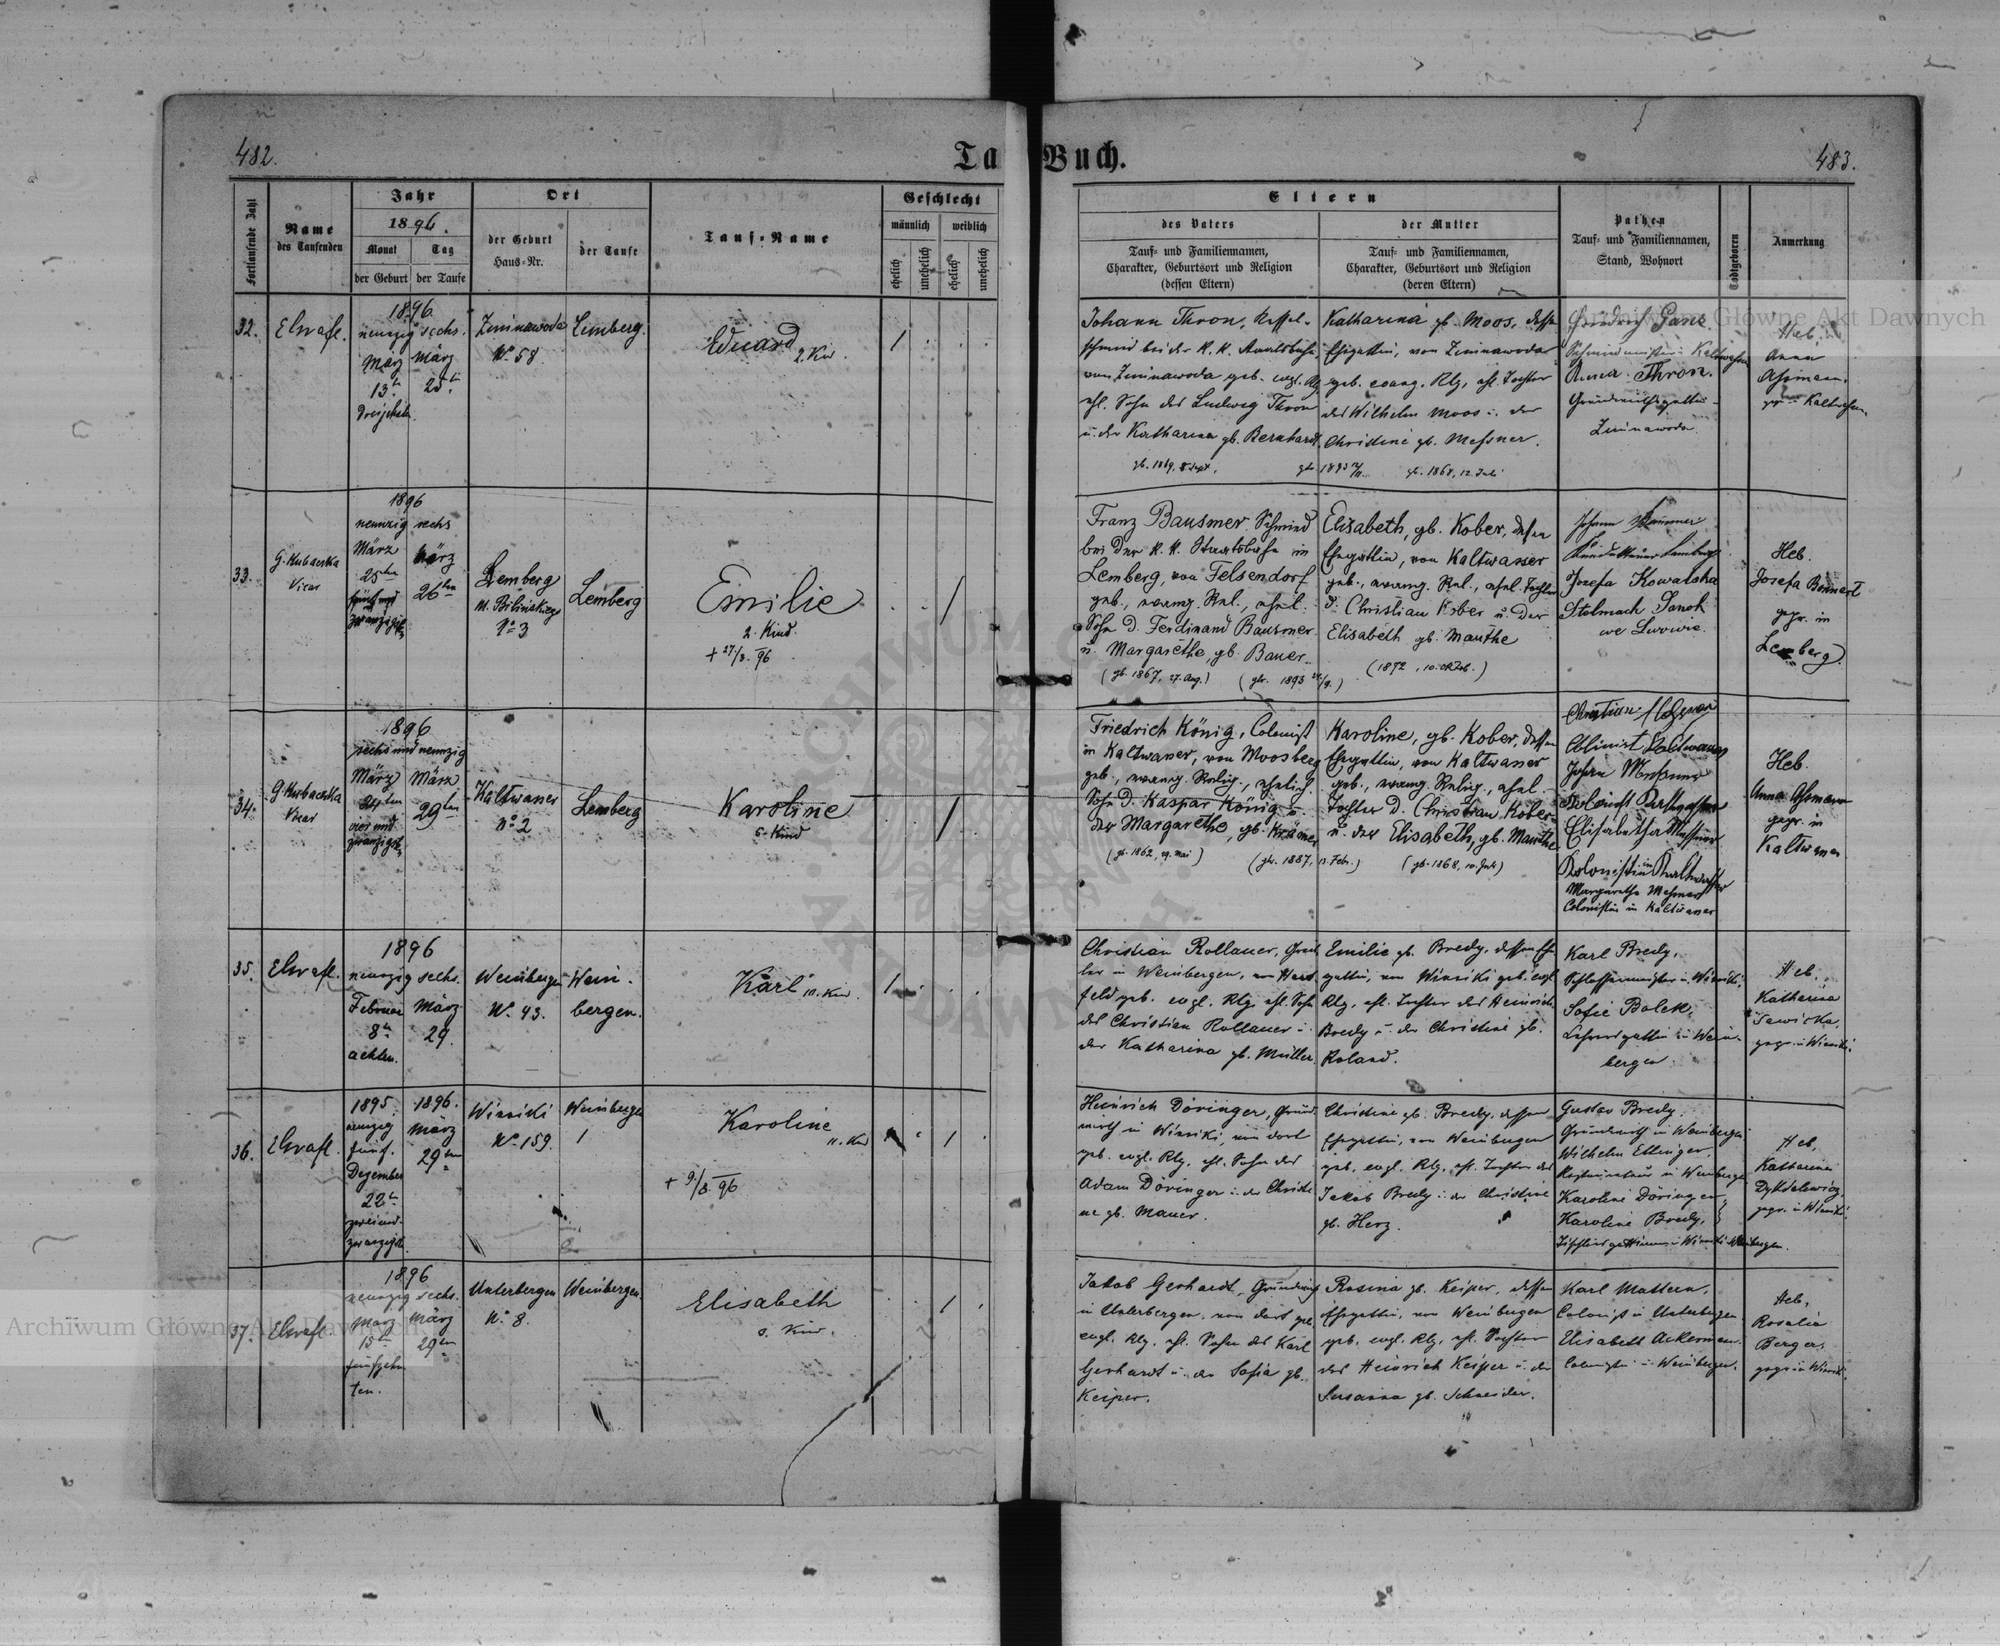 482.
Ta Buch.
483.
Fortlaufende Zahl
Name
des Taufenden
Jahr
1896.
Monat
Tag
der Geburt
der Taufe
Ort
der Geburt
Haus-Nr.
der Taufe
Tauf-Name
Geschlecht
männlich
weiblich
ehelich
unehelich
ehelich
unehelich
Eltern
des Vaters
Tauf- und Familiennamen,
Charakter, Geburtsort und Religion
(dessen Eltern)
der Mutter
Tauf- und Familiennamen,
Charakter, Geburtsort und Religion
(deren Eltern)
Pathen
Tauf- und Familiennamen,
Stand, Wohnort
Todtgeboren
Anmerkung
32.
1896
neunzig sechs.
März
13.
März
25.
Zimnawoda
No 58
Lemberg.
Eduard
2. Kind.
1
Johann Thron, Kessel-
schmied bei der K. K. Staatsbahn
von Zimnawoda geb. evgl. Rlg
ehl. Sohn des Ludwig Thron
u. der Katharina gb. Bernhardt
gb. 1869, 8. Sept.
Katharina gb. Moos, dessen
Ehegattin, von Zimnawoda
geb. evang. Rlg, ehl. Tochter
des Wilhelm Moos u. der
Christine gb. Messner.
gb. 1868, 12. Juli
Anna Thron.
Zimnawoda
Heb.
Anna
33.
G. Kubaczka
Vicar
1896
neunzig sechs
März
25ten
fünf und
zwanzigste
März
26ten
Lemberg
No 3
Lemberg
Emilie
2. Kind.
+ 27/3. 96
Franz Bausmer, Schmied
bei der K. K. Staatsbahn in
Lemberg, von Felsendorf
geb., evang. Rel., ehel.
Sohn d. Ferdinand Bausmer
u. Margarethe, gb. Bauer.
(gb. 1867, 27. Aug.)
Elisabeth, gb. Kober, dessen
Ehegattin, von Kaltwasser
geb., evang. Rel., ehel. Tochter
d. Christian Kober u. der
Elisabeth gb. Mauthe
(1872, 10. Oktob.)
Jozefa Kowalska
we Lwowie.
Heb.
Josefa
gepr. in
Lemberg.
34.
G. Kubaczka
Vicar
1896
sechs und neunzig
März
24ten
vier und
zwanzigste
März
29ten
Kaltwasser
No 2
Lemberg
Karoline
5. Kind
Friedrich König, Colonist
in Kaltwasser, von Moosberg
geb., evang. Relig., ehelich.
Sohn d. Kaspar König u.
der Margarethe, gb. Krämer
(gb. 1862, 19. Mai)
(gtr. 1887, 13. Febr.)
Karoline, gb. Kober, dessen
Ehegattin, von Kaltwasser
geb., evang. Relig., ehel.
Tochter d. Christian Kober
u. der Elisabeth, gb. Mauthe
Colonist Kaltwasser
Elisabetha Messner
Kolonistin in Kaltwasser
Margarethe Messner
Colonistin in Kaltwasser
Heb.
Anna
gepr. in
Kaltwasser
35.
1896
neunzig sechs.
Februar
8ten
achten.
März
29.
Weinbergen
No 43.
Wein-
bergen.
Karl
10. Kind.
1
Christian Rollauer,
in Weinbergen, von Hart-
feld geb. evgl. Rlg. ehl. Sohn
des Christian Rollauer u.
der Katharina gb. Müller.
Emilie gb. Bredy, dessen Ehe-
gattin, von Winniki geb. evgl.
Rlg, ehl. Tochter des Heinrich
Bredy u. der Christine gb.
Roland.
Karl Bredy,
Schlossermeister in Winniki,
Sofie Bolek,
Lehrersgattin in Wein-
bergen.
Heb.
Katharina
Sawicka,
gepr. in Winniki.
36.
1895.
neunzig
fünf.
Dezember
22ten
zweiund-
zwanzigst.
1896.
März
29ten
Winniki
No 159.
Weinbergen
Karoline
11. Kind
+ 9/8. 96
1
Heinrich Döringer, Grund-
wirth in Winniki, von dort
geb. evgl. Rlg, ehl. Sohn des
Adam Döringer u. der Christi-
ne gb. Mauer.
Christine gb. Bredy, dessen
Ehegattin, von Weinbergen
geb. evgl. Rlg, ehl. Tochter des
Jakob Bredy u. der Christine
gb. Herz.
Gustav Bredy,
Grundwirth in Weinbergen
Wilhelm Ettinger,
Karoline Döringer
Karoline Bredy,
Heb.
Katharina
gepr. in Winniki.
37.
1896
neunzig sechs.
März
15ten
fünfzehn-
ten.
März
29ten
Unterbergen
No 8.
Weinbergen.
Elisabeth
1
Jakob Gerhardt, Grundwirth
in Unterbergen, von dort geb.
evgl. Rlg, ehl. Sohn des Karl
Gerhardt u. der Sofia gb.
Keiper.
Rosina gb. Keiper, dessen
Ehegattin, von Weinbergen
geb. evgl. Rlg, ehl. Tochter
des Heinrich Keiper u. der
Susanna gb. Schneider.
Karl Mattern,
Colonist in Unterbergen
Elisabeth Ackermann.
Heb.
Rosalia
Berger,
gepr. in Winniki.
Archiwum Główne Akt Dawnych
Archiwum Główne Akt Dawnych